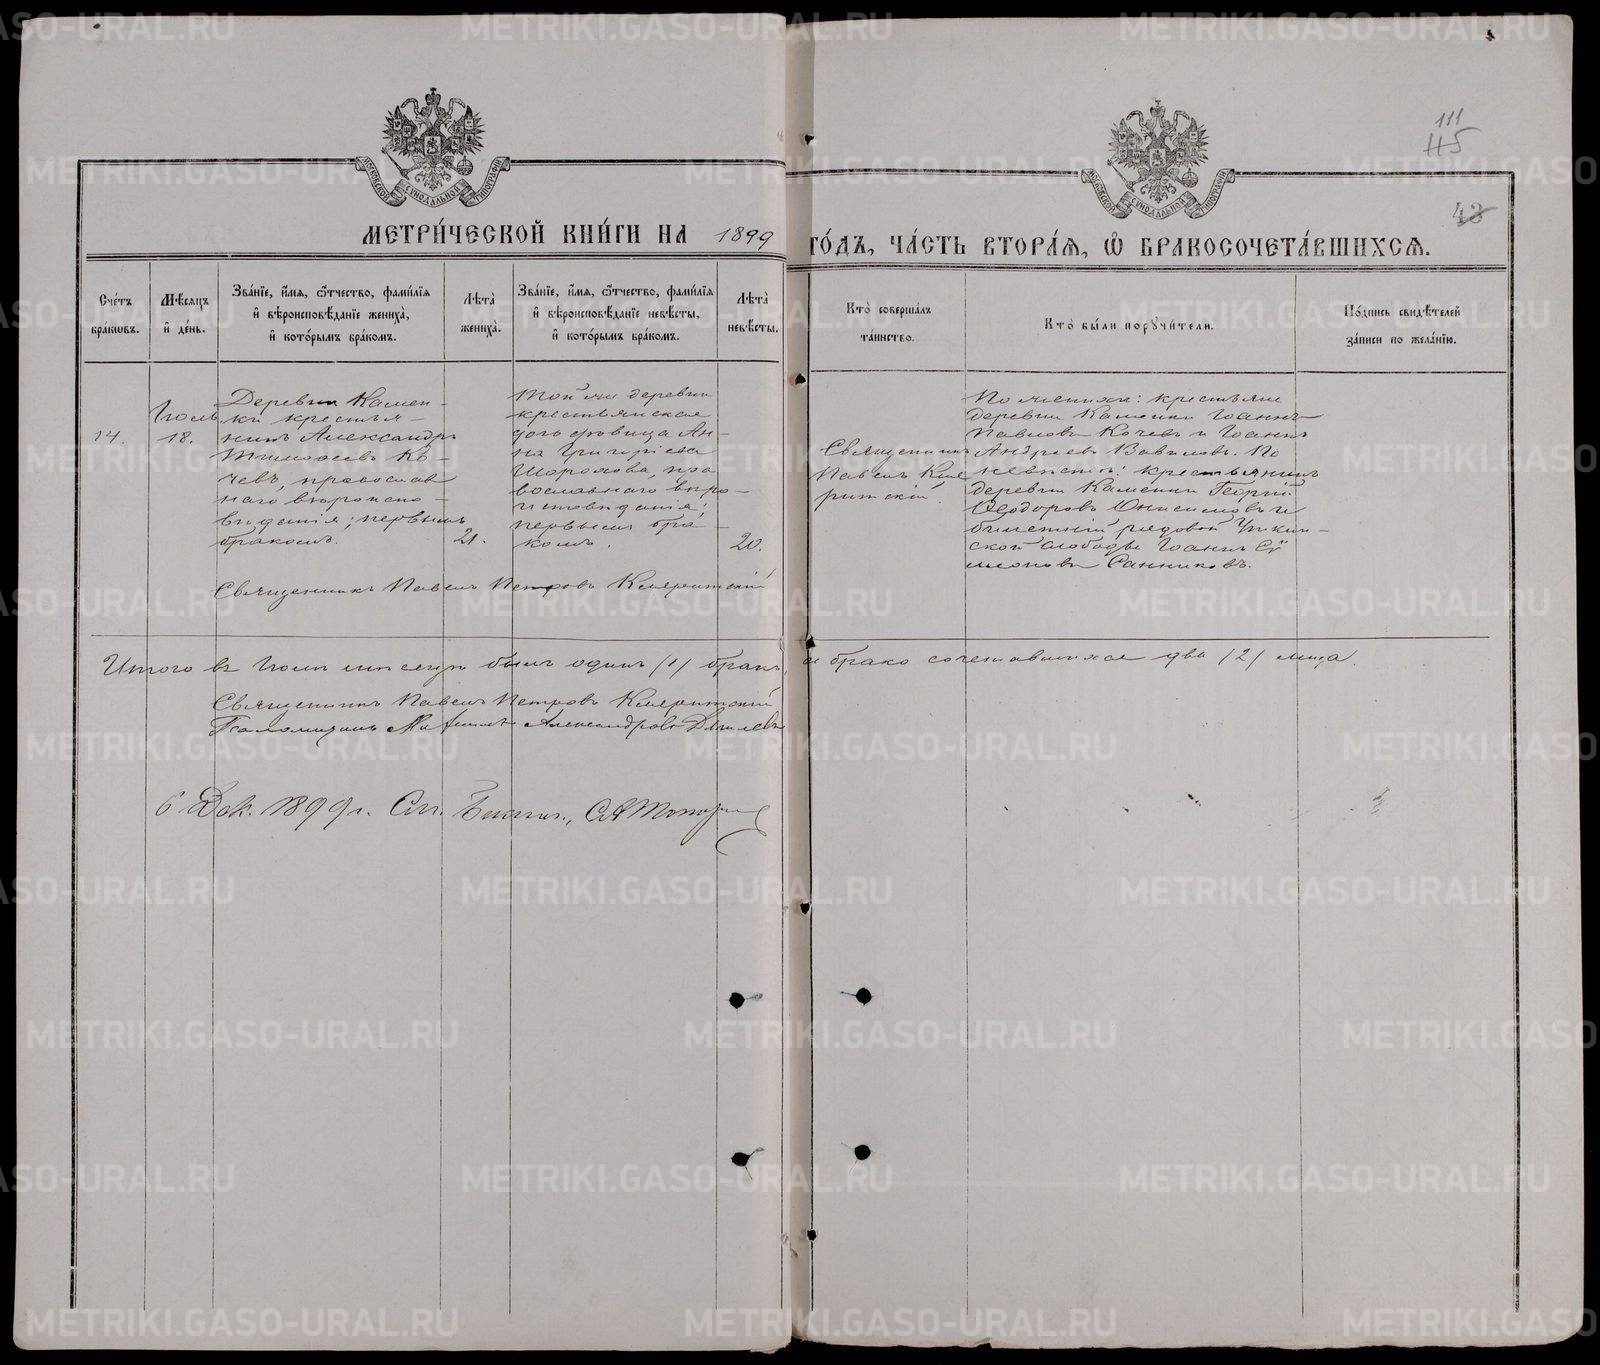 111
115
43
МОСКОВСКОЙ СѴНОДАЛЬНОЙ ТИПОГРАФІИ
МОСКОВСКОЙ СѴНОДАЛЬНОЙ ТИПОГРАФІИ
МЕТРИ́ЧЕСКОЙ КНИ́ГИ НА 1899 ГО́ДЪ, ЧА́СТЬ ВТОРА́Я, Ѽ БРАКОСОЧЕТА́ВШИХСЯ.
Сче́тъ бра́кѡвъ.
Мѣ́сяцъ и҆ де́нь.
Зва́нїе, и҆́мя, ѻ҆́тчество, фами́лїя и҆ вѣроисповѣ́данїе жениха̀, и҆ кото́рымъ бра́комъ.
Лѣ́та жениха̀.
Зва́нїе, и҆́мя, ѻ҆́тчество, фами́лїя и҆ вѣроисповѣ́данїе невѣ́сты, и҆ кото́рымъ бра́комъ.
Лѣ́та невѣ́сты.
Кто̀ соверша́лъ та́инство.
Кто̀ бы́ли порꙋчи́тели.
По́дпись свидѣ́телей за́писи по жела́нїю.
14.
Іюль
18.
Деревни Камен-
ки крестья-
нинъ Александръ
Тимофеевъ Ко-
чевъ, православ
наго вѣроиспо-
вѣданія; первымъ
бракомъ.
21.
Той же деревни
крестьянская
дочь дѣвица Ан-
на Григоріева
Шорохова, пра
вославнаго вѣро-
исповѣданія;
первымъ бра-
комъ.
20.
Священникъ
Павелъ
По женихѣ: крестьяне
деревни Каменки Іоаннъ
Павловъ Кочевъ и Іоаннъ
Андреевъ Вавиловъ. По
невѣстѣ: крестьянинъ
деревни Каменки Георгій
Ѳеодоровъ Онисимовъ и
билетный рядовой Уткин-
ской слободы Іоаннъ Сѵ
меоновъ Санниковъ.
Священникъ Павелъ Петровъ
Итого въ Іюлѣ мѣсяцѣ былъ одинъ /1/ бракъ, а брако сочетавшихся два /2/ лица.
Священникъ Павелъ Петровъ
Псаломщикъ Александровъ
6 Дек. 1899 г.
METRIKI.GASO-URAL.RU